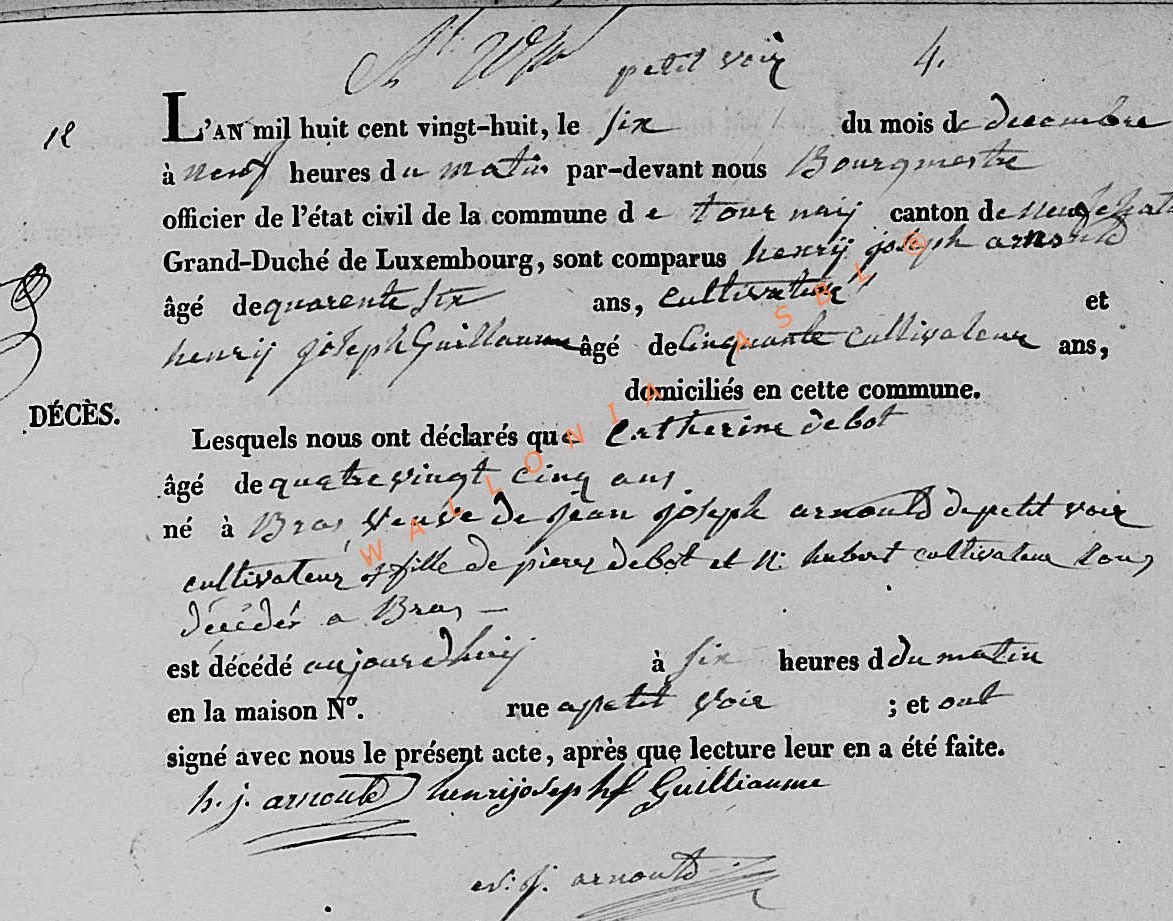 petit voir 4.
12
L'AN mil huit cent vingt-huit, le six du mois de decembre
à neuf heures du matin par-devant nous Bourgmestre
officier de l'état civil de la commune de tournaij canton de
Grand-Duché de Luxembourg, sont comparus henrij joseph arnould
âgé de quarente six ans, cultivateur et
henrij joseph Guillaume âgé de Cinquante cultivateur ans,
domiciliés en cette commune.
DÉCÈS.
Lesquels nous ont déclarés que Catherine debot
âgé de quatre vingt cinq ans
né à Bras, Veuve de jean joseph arnould de petit voir
cultivateur et fille de pierre debot et N: hubert cultivateur tous
décédés a Bras,
est décédé aujourdhuij à six heures d du matin
en la maison N°. rue a petit voir ; et ont
signé avec nous le présent acte, après que lecture leur en a été faite.
h. j. arnould henrijoseph Guilliaume
arnould
WALLONIA ASBL ©